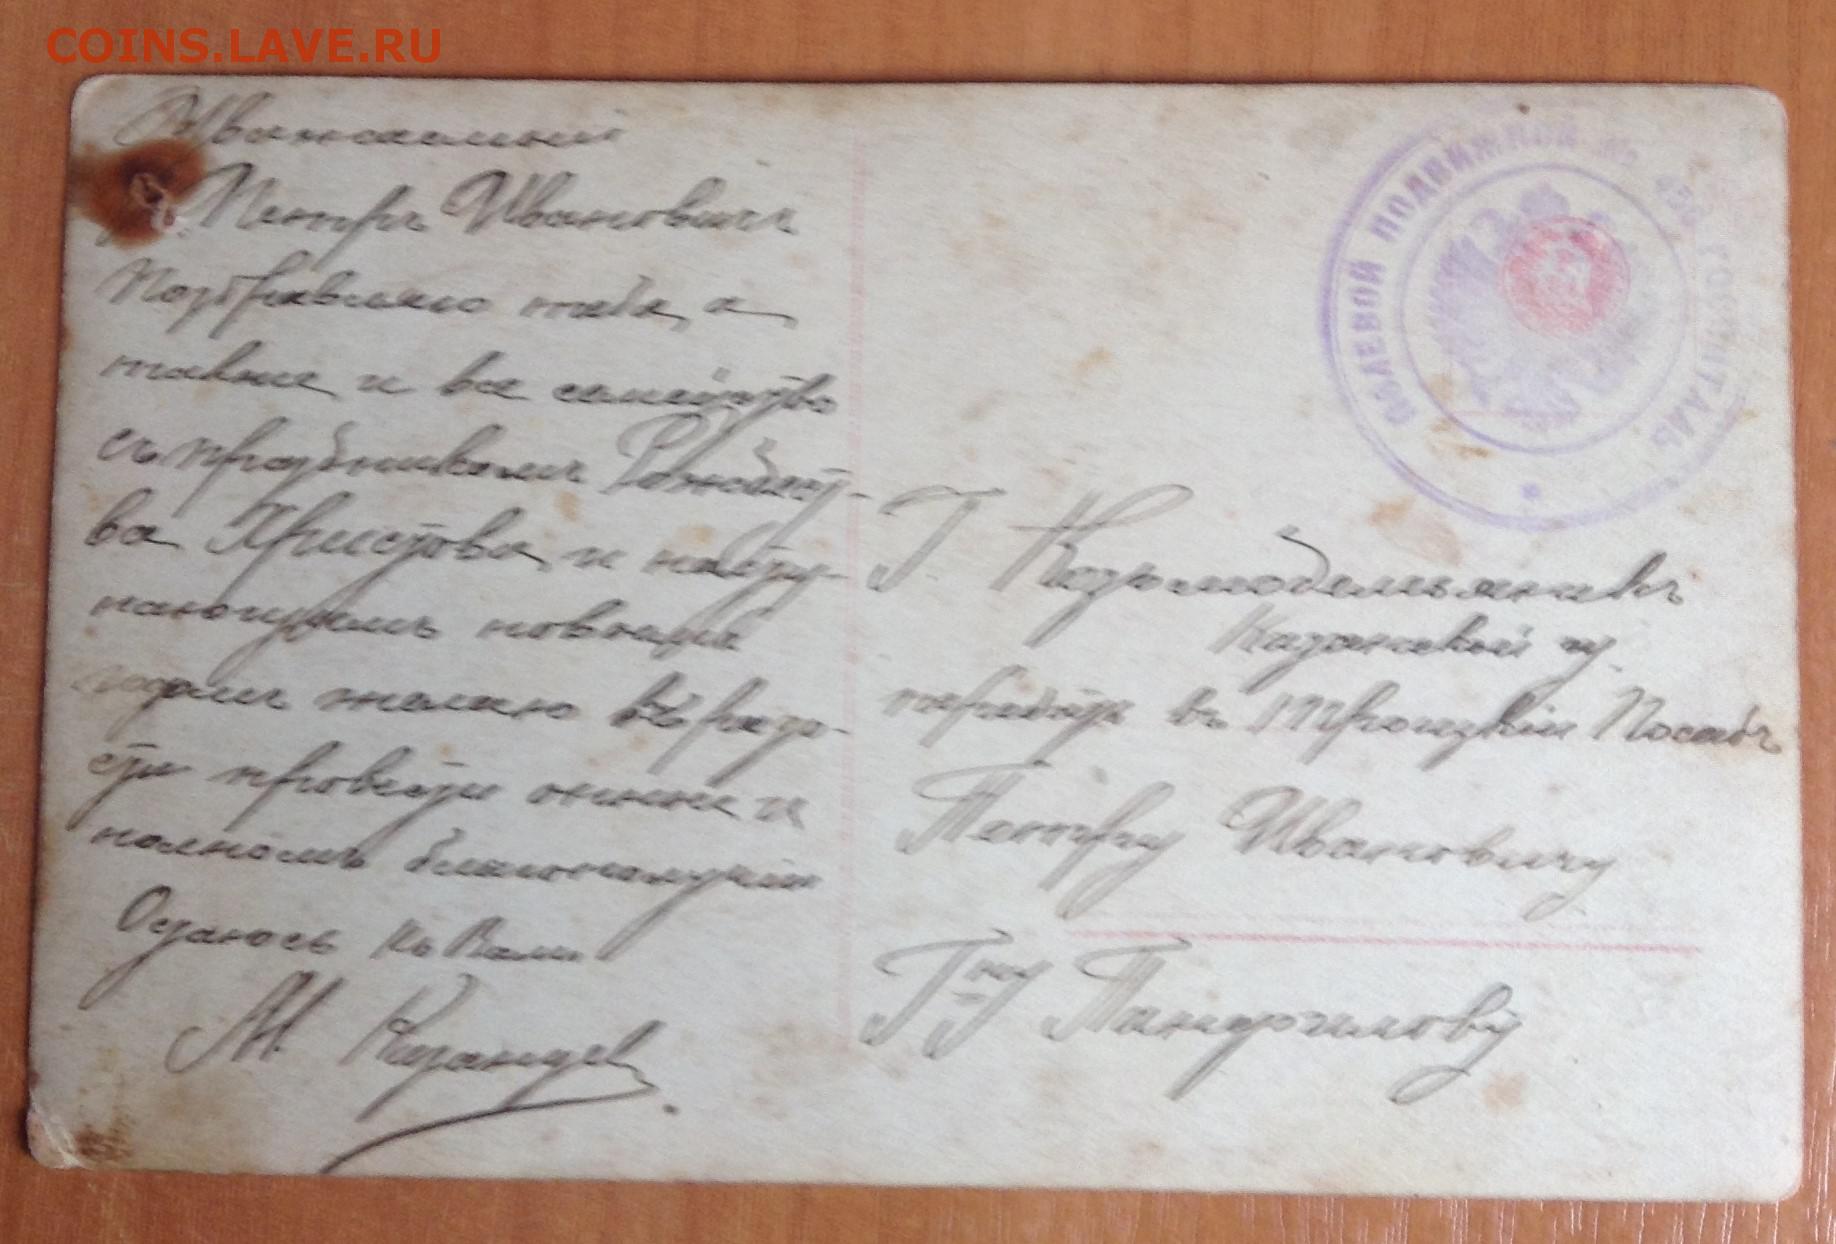 COINS.LAVE.RU
Уважаемый
Петръ Ивановичъ
Поздравляю тебя, а
также и все семейство
съ праздникомъ Рождест-
ва Христова и насту-
пающимъ новымъ
годомъ желаю въ радо-
сти провести оные и
полномъ благополучии
Остаюсь къ Вамъ
М. Казанцев
ПОЛЕВОЙ ПОДВИЖНОЙ № ГОСПИТАЛЬ
Г Козьмодемьянскъ
Казанской гу.
передать въ Троицкій Посадъ
Петру Ивановичу
Гну Панфилову